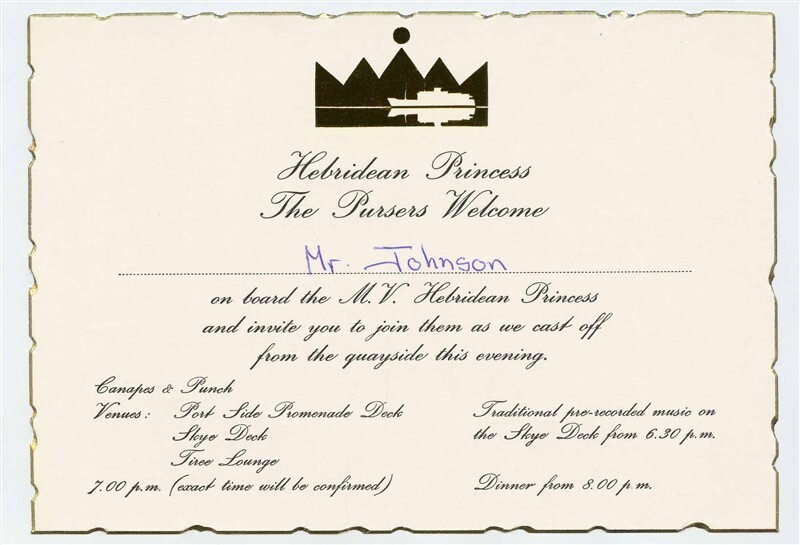 Hebridean Princess
The Pursers Welcome
Mr. Johnson
on board the M.V. Hebridean Princess
and invite you to join them as we cast off
from the quayside this evening.
Canapes & Punch
Venues: Port Side Promenade Deck
Skye Deck
Tiree Lounge
7.00 p.m. (exact time will be confirmed)
Traditional pre-recorded music on
the Skye Deck from 6.30 p.m.
Dinner from 8.00 p.m.